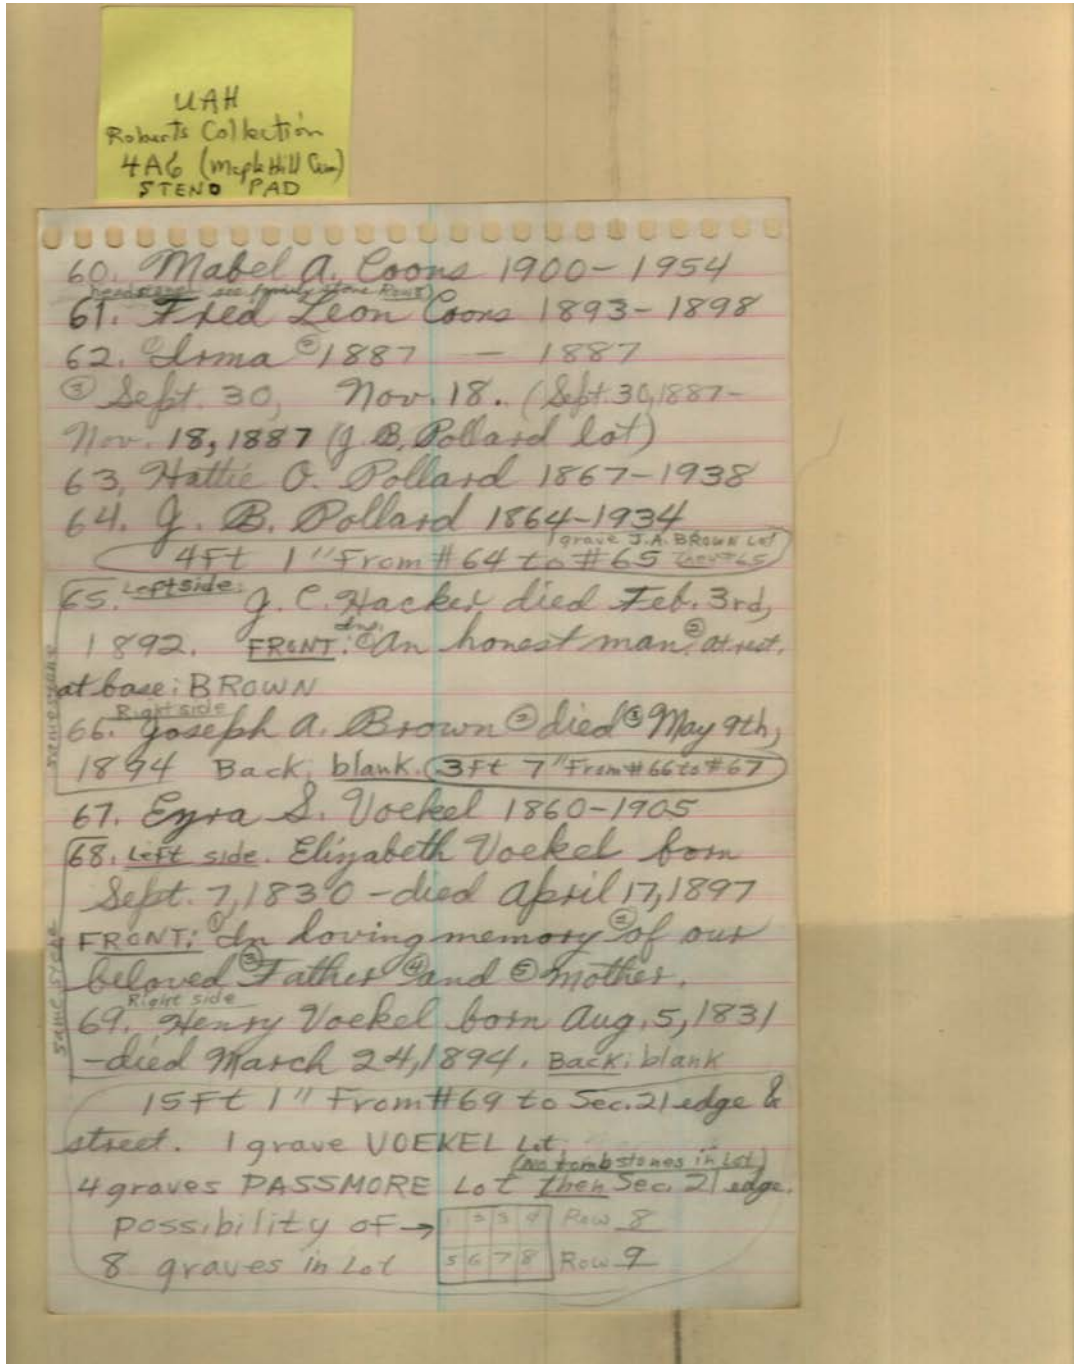 UAH
Roberts Collection
4A6 (Maple Hill Cem)
STENO PAD
60. Mabel A. Coons 1900-1954
headstone see family stone Row 8)
61. Fred Leon Coons 1893-1898
62. ① Irma ② 1887 — 1887
③ Sept. 30, Nov. 18. (Sept. 30, 1887-
Nov. 18, 1887 (J. B. Pollard lot)
63. Hattie O. Pollard 1867-1938
64. J. B. Pollard 1864-1934
1 grave J.A. BROWN Lot
4Ft 1" From #64 to #65
65. Left side: J. C. Hacker died Feb. 3rd,
1892. FRONT: ① An honest man ② at rest.
at base: BROWN
Right side
66. Joseph A. Brown ② died ③ May 9th,
1894 Back, blank. 3Ft 7" From #66 to #67
same stone
67. Ezra S. Voekel 1860-1905
68. Left side. Elizabeth Voekel born
Sept. 7, 1830 - died April 17, 1897
FRONT: ① In loving memory ② of our
beloved ③ Father ④ and ⑤ mother.
Right side
69. Henry Voekel born Aug. 5, 1831
-died March 24, 1894. Back: blank
same stone
15Ft 1" From #69 to Sec. 21 edge &
street. 1 grave VOEKEL Lot
(no tombstones in Lot)
4 graves PASSMORE Lot then Sec. 21 edge.
possibility of → 1 2 3 4 Row 8
8 graves in Lot 5 6 7 8 Row 9